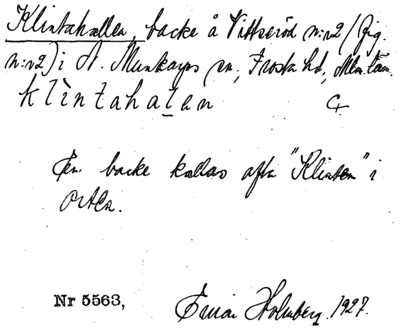 Klintahallen, backe å Vittseröd n:r 2 (fig.
n:r 2) i Ö. Munkarps sn, Frosta hd, Mlm. län.
klìntahalen
En backe kallas ofta "Klinten" i
orten.
Nr 5563, Einar Holmberg. 1927.